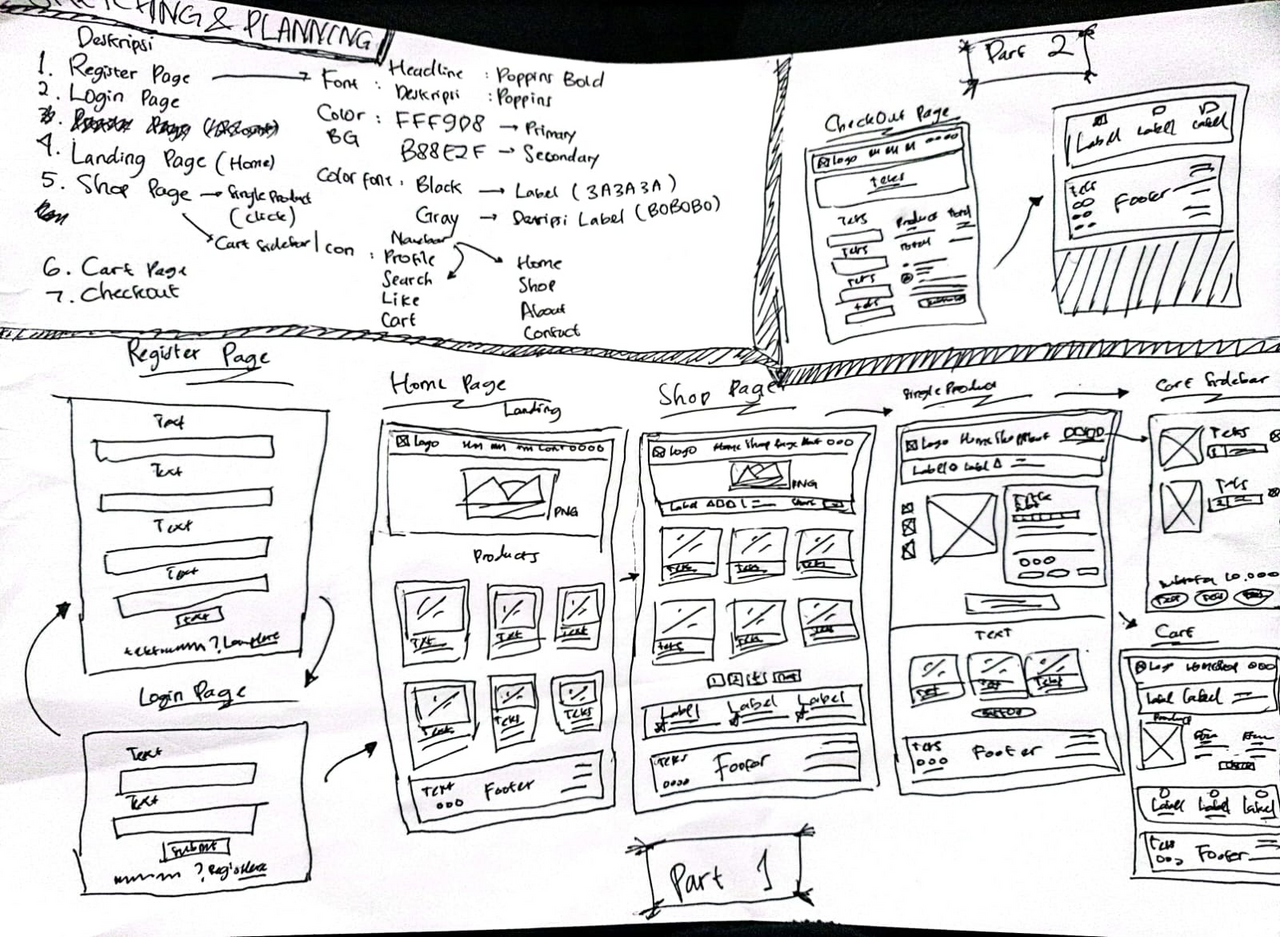 SKETCHING & PLANNING
Deskripsi
1. Register Page
2. Login Page
3.
4. Landing Page (Home)
5. Shop Page → Single Product
(click)
Cart Sidebar
6. Cart Page
7. Checkout
Font : Headline : Poppins Bold
Deskripsi : Poppins
Color : FFF9D8 → Primary
BG B88E2F → Secondary
Color font : Black → Label (3A3A3A)
Gray → Deskripsi Label (B0B0B0)
Icon : Navbar
Profile
Search
Like
Cart
Home
Shop
About
Contact
Part 2
CheckOut Page
Logo
teks
Teks
Teks
Teks
teks
Product Total
Total
Label Label Label
teks
Footer
Register Page
Text
Text
Text
Text
text
Login Page
Text
Text
Submit
? Register
Home Page
Landing
Logo
PNG
Products
Text
Text
Text
Text
Teks
Teks
Text
Footer
Shop Page
Logo Home Shop
PNG
Label
Teks
Teks
Label Label Label
Teks
Footer
Single Product
Logo Home Shop
Label Label
TEXT
Text
Text
Text
Teks
Footer
Cart Sidebar
Teks
Teks
Cart
Logo
Label Label
Product
Label Label Label
Teks
Footer
Part 1